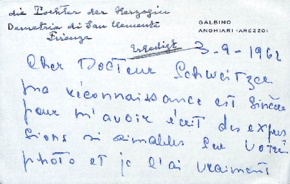 die Tochter der Herzogin
Demetria di San Clemente
Firenze
GALBINO
ANGHIARI (AREZZO)
Erledigt
3-9-1962
Cher Docteur Schweitzer
ma réconnaissance est sincère
pour m'avoir écrit des expres
sions si aimables sur votre
photo et je l'ai vraiment